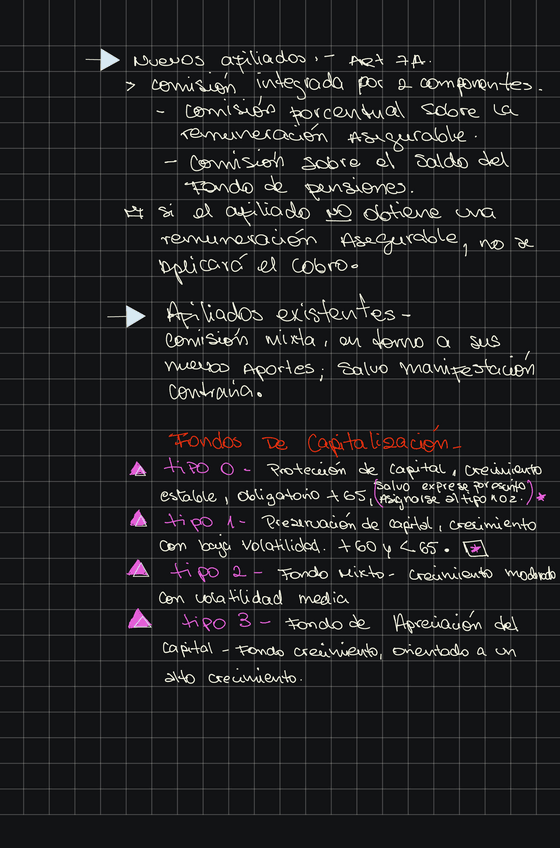 Nuevos afiliados.- Art 7A.
> comisión integrada por 2 componentes.
- comisión porcentual sobre la
remuneración Asegurable.
- comisión sobre el saldo del
Fondo de pensiones.
si el afiliado NO obtiene una
remuneración Asegurable, no se
Aplicará el cobro.
Afiliados existentes-
comisión mixta, en torno a sus
nuevos Aportes; salvo manifestación
contraria.
Fondos De Capitalización-
tipo 0- Protección de capital, crecimiento
estable, obligatorio +65, (salvo exprese por escrito
Asignarse al tipo 1 o 2.) *
tipo 1- Preservación de capital, crecimiento
con baja volatilidad. +60 y <65. *
tipo 2- Fondo Mixto- crecimiento moderado
con volatilidad media
tipo 3- Fondo de Apreciación del
capital - Fondo crecimiento, orientado a un
alto crecimiento.